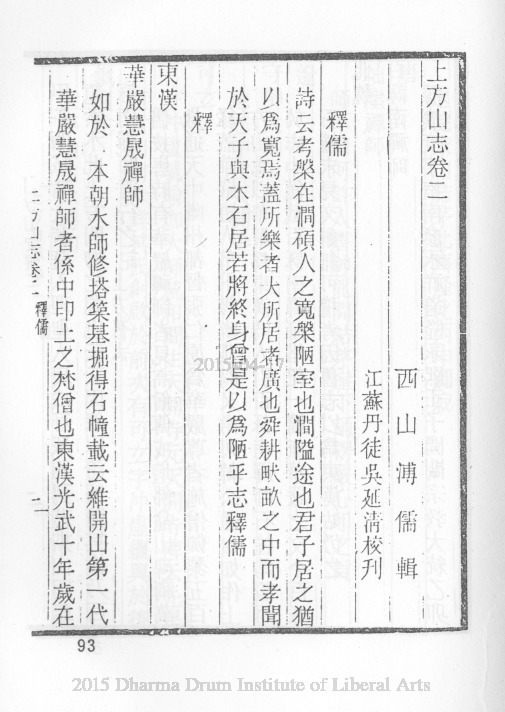 上方山志卷二
西山溥儒輯
江蘇丹徒吳延清校刊
釋儒
詩云考槃在澗碩人之寬槃陋室也澗隘途也君子居之猶
以爲寬焉蓋所樂者大所居者廣也舜耕畎畝之中而孝聞
於天子與木石居若將終身曾是以爲陋乎志釋儒
釋
東漢
華嚴慧晟禪師
如於 本朝水師修塔築基掘得石幢載云維開山第一代
華嚴慧晟禪師者係中印土之梵僧也東漢光武十年歲在
上方山志卷二 釋儒
93
2015 Dharma Drum Institute of Liberal Arts